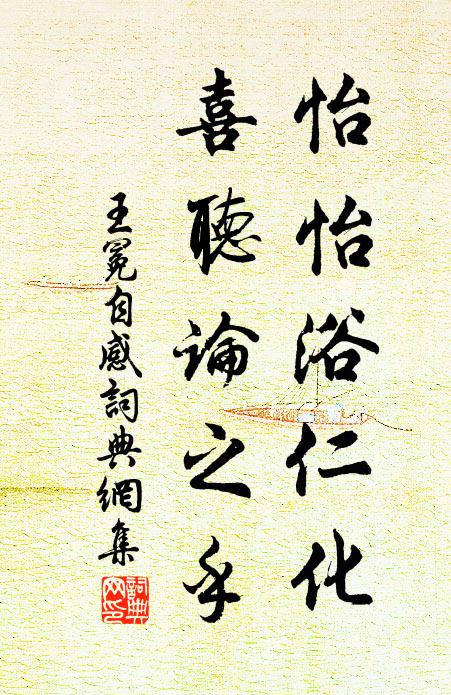 怡怡浴仁化
喜聽論之乎
王冕自感詞典網集
詞典網印